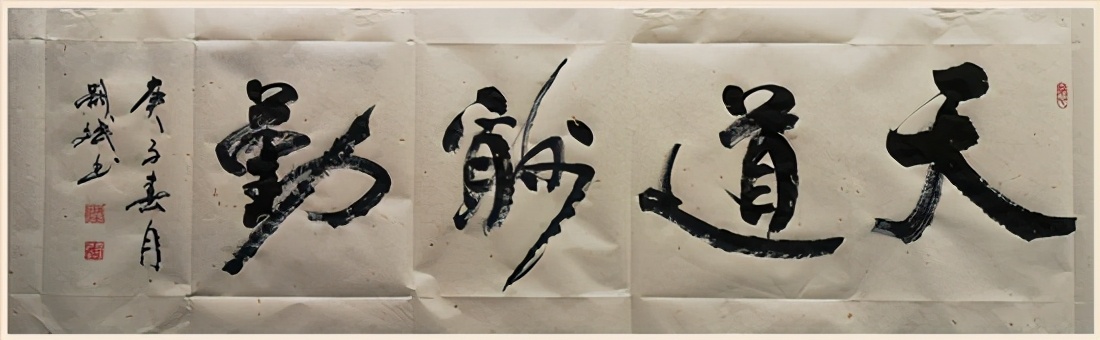 天道酬勤
庚子春月
斌书